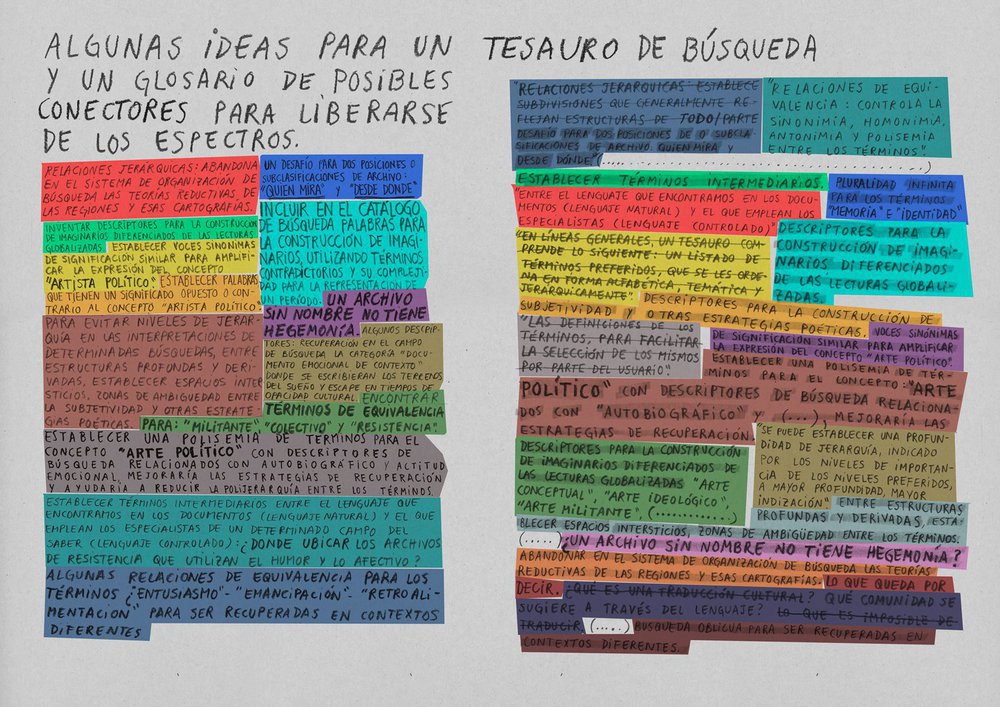 ALGUNAS IDEAS PARA UN
Y UN GLOSARIO DE POSIBLES
CONECTORES PARA LIBERARSE
DE LOS ESPECTROS.
RELACIONES JERÁRQUICAS: ABANDONA
EN EL SISTEMA DE ORGANIZACIÓN DE
BÚSQUEDA LAS TEORÍAS REDUCTIVAS DE
LAS REGIONES Y ESAS CARTOGRAFÍAS.
UN DESAFÍO PARA DOS POSICIONES O
SUBCLASIFICACIONES DE ARCHIVO:
"QUIEN MIRA" Y "DESDE DONDE"
INVENTAR DESCRIPTORES PARA LA CONSTRUCCIÓN
DE IMAGINARIOS DIFERENCIADOS DE LAS LECTURAS
GLOBALIZADAS. ESTABLECER VOCES SINÓNIMAS
DE SIGNIFICACIÓN SIMILAR PARA AMPLIFI-
CAR LA EXPRESIÓN DEL CONCEPTO
"ARTISTA POLÍTICO". ESTABLECER PALABRAS
QUE TIENEN UN SIGNIFICADO OPUESTO O CON-
TRARIO AL CONCEPTO "ARTISTA POLÍTICO"
INCLUIR EN EL CATÁLOGO
DE BÚSQUEDA PALABRAS PARA
LA CONSTRUCCIÓN DE IMAGI-
NARIOS, UTILIZANDO TÉRMINOS
CONTRADICTORIOS Y SU COMPLEJI-
DAD PARA LA REPRESENTACIÓN DE
UN PERÍODO. UN ARCHIVO
SIN NOMBRE NO TIENE
HEGEMONÍA.
PARA EVITAR NIVELES DE JERAR-
QUÍA EN LAS INTERPRETACIONES DE
DETERMINADAS BÚSQUEDAS, ENTRE
ESTRUCTURAS PROFUNDAS Y DERI-
VADAS, ESTABLECER ESPACIOS INTER
STICIOS, ZONAS DE AMBIGUEDAD ENTRE
LA SUBJETIVIDAD Y OTRAS ESTRATE
GIAS POÉTICAS.
ALGUNOS DESCRIP-
TORES: RECUPERACIÓN EN EL CAMPO
DE BÚSQUEDA LA CATEGORÍA "DOCU-
MENTO EMOCIONAL DE CONTEXTO"
DONDE SE ESCRIBIERAN LOS TERRENOS
DEL SUEÑO Y ESCAPE EN TIEMPOS DE
OPACIDAD CULTURAL. ENCONTRAR
TÉRMINOS DE EQUIVALENCIA
PARA: "MILITANTE" "COLECTIVO" Y "RESISTENCIA"
ESTABLECER UNA POLISEMIA DE TERMINOS PARA EL
CONCEPTO "ARTE POLÍTICO" CON DESCRIPTORES DE
BÚSQUEDA RELACIONADOS CON AUTOBIOGRÁFICO Y ACTITUD
EMOCIONAL, MEJORARÍA LAS ESTRATEGIAS DE RECUPERACIÓN
Y AYUDARÍA A REDUCIR LA POLIJERARQUÍA ENTRE LOS TÉRMINOS.
ESTABLECER TÉRMINOS INTERMEDIARIOS ENTRE EL LENGUAJE QUE
ENCONTRAMOS EN LOS DOCUMENTOS (LENGUAJE NATURAL) Y EL QUE
EMPLEAN LOS ESPECIALISTAS DE UN DETERMINADO CAMPO DEL
SABER (LENGUAJE CONTROLADO): ¿DONDE UBICAR LOS ARCHIVOS
DE RESISTENCIA QUE UTILIZAN EL HUMOR Y LO AFECTIVO?
ALGUNAS RELACIONES DE EQUIVALENCIA PARA LOS
TÉRMINOS ¿ENTUSIASMO"- "EMANCIPACIÓN". "RETROALI-
MENTACIÓN" PARA SER RECUPERADAS EN CONTEXTOS
DIFERENTES
TESAURO DE BÚSQUEDA
"RELACIONES JERÁRQUICAS: ESTABLECE
SUBDIVISIONES QUE GENERALMENTE RE-
FLEJAN ESTRUCTURAS DE TODO/PARTE
DESAFÍO PARA DOS POSICIONES DE O SUBCLA-
SIFICACIONES DE ARCHIVO: QUIEN MIRA Y
DESDE DÓNDE" (.......................................................)
"RELACIONES DE EQUI-
VALENCIA: CONTROLA LA
SINONIMIA, HOMONIMIA,
ANTONIMIA Y POLISEMIA
ENTRE LOS TÉRMINOS".
ESTABLECER TÉRMINOS INTERMEDIARIOS.
"ENTRE EL LENGUAJE QUE ENCONTRAMOS EN LOS DOCU-
MENTOS (LENGUAJE NATURAL) Y EL QUE EMPLEAN LOS
ESPECIALISTAS (LENGUAJE CONTROLADO)"
PLURALIDAD INFINITA
PARA LOS TÉRMINOS
"MEMORIA" E "IDENTIDAD"
"EN LÍNEAS GENERALES, UN TESAURO COM-
PRENDE LO SIGUIENTE: UN LISTADO DE
TÉRMINOS PREFERIDOS, QUE SE LES ORDE-
NA EN FORMA ALFABÉTICA, TEMÁTICA Y
JERÁRQUICAMENTE".
DESCRIPTORES PARA LA
CONSTRUCCIÓN DE IMAGI-
NARIOS DIFERENCIADOS
DE LAS LECTURAS GLOBALI-
ZADAS.
DESCRIPTORES PARA LA CONSTRUCCIÓN DE
SUBJETIVIDAD Y OTRAS ESTRATEGIAS POÉTICAS.
"LAS DEFINICIONES DE LOS
TÉRMINOS, PARA FACILITAR
LA SELECCIÓN DE LOS MISMOS
POR PARTE DEL USUARIO".
VOCES SINÓNIMAS
DE SIGNIFICACIÓN SIMILAR PARA AMPLIFICAR
LA EXPRESIÓN DEL CONCEPTO "ARTE POLÍTICO".
ESTABLECER UNA POLISEMIA DE TÉR-
MINOS PARA EL CONCEPTO: "ARTE
POLÍTICO" CON DESCRIPTORES DE BÚSQUEDA RELACIONA-
DOS CON "AUTOBIOGRÁFICO" Y (...) MEJORARÍA LAS
ESTRATEGIAS DE RECUPERACIÓN.
DESCRIPTORES PARA LA CONSTRUCCIÓN
DE IMAGINARIOS DIFERENCIADOS DE
LAS LECTURAS GLOBALIZADAS "ARTE
CONCEPTUAL", "ARTE IDEOLÓGICO",
"ARTE MILITANTE", (............)
"SE PUEDE ESTABLECER UNA PROFUN-
DIDAD DE JERARQUÍA, INDICADO
POR LOS NIVELES DE IMPORTAN-
CIA DE LOS NIVELES PREFERIDOS,
A MAYOR PROFUNDIDAD, MAYOR
INDIZACIÓN". ENTRE ESTRUCTURAS
PROFUNDAS Y DERIVADAS, ESTA-
BLECER ESPACIOS INTERSTICIOS, ZONAS DE AMBIGÜEDAD ENTRE LOS TÉRMINOS.
(.....) ¿UN ARCHIVO SIN NOMBRE NO TIENE HEGEMONÍA?
ABANDONAR EN EL SISTEMA DE ORGANIZACIÓN DE BÚSQUEDA LAS TEORÍAS
REDUCTIVAS DE LAS REGIONES Y ESAS CARTOGRAFÍAS. LO QUE QUEDA POR
DECIR. ¿QUÉ ES UNA TRADUCCIÓN CULTURAL? QUÉ COMUNIDAD SE
SUGIERE A TRAVÉS DEL LENGUAJE? LO QUE ES IMPOSIBLE DE
TRADUCIR. (.....) BUSQUEDA OBLICUA PARA SER RECUPERADAS EN
CONTEXTOS DIFERENTES.